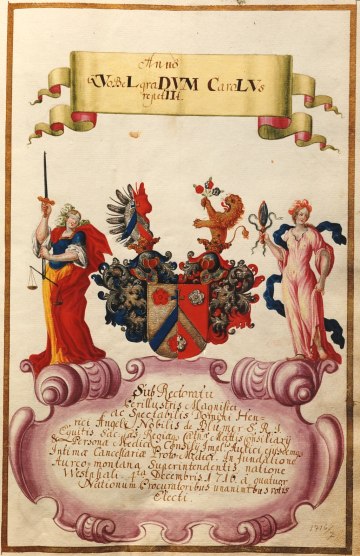 Anno
qVo BeLgraDVM CaroLVs
repetIIt.
Sub Rectoratu
Perillustris Magnifici
ac Spectabilis Domini Hen-
rici Angeli Nobilis de Blumer S. R. I.
Equitis Sac: Regiaeq; Mattis Consiliarij
& Persona Medici Aulici ejusdemq;
Intima Cancellariae Proto-Medici In fundatione
Aureo montana Superintendentis natione
Westphali 4ta Decembris 1716. à quatuor
Nationum Procuratoribus unanimibus votis
Electi.
1716/7